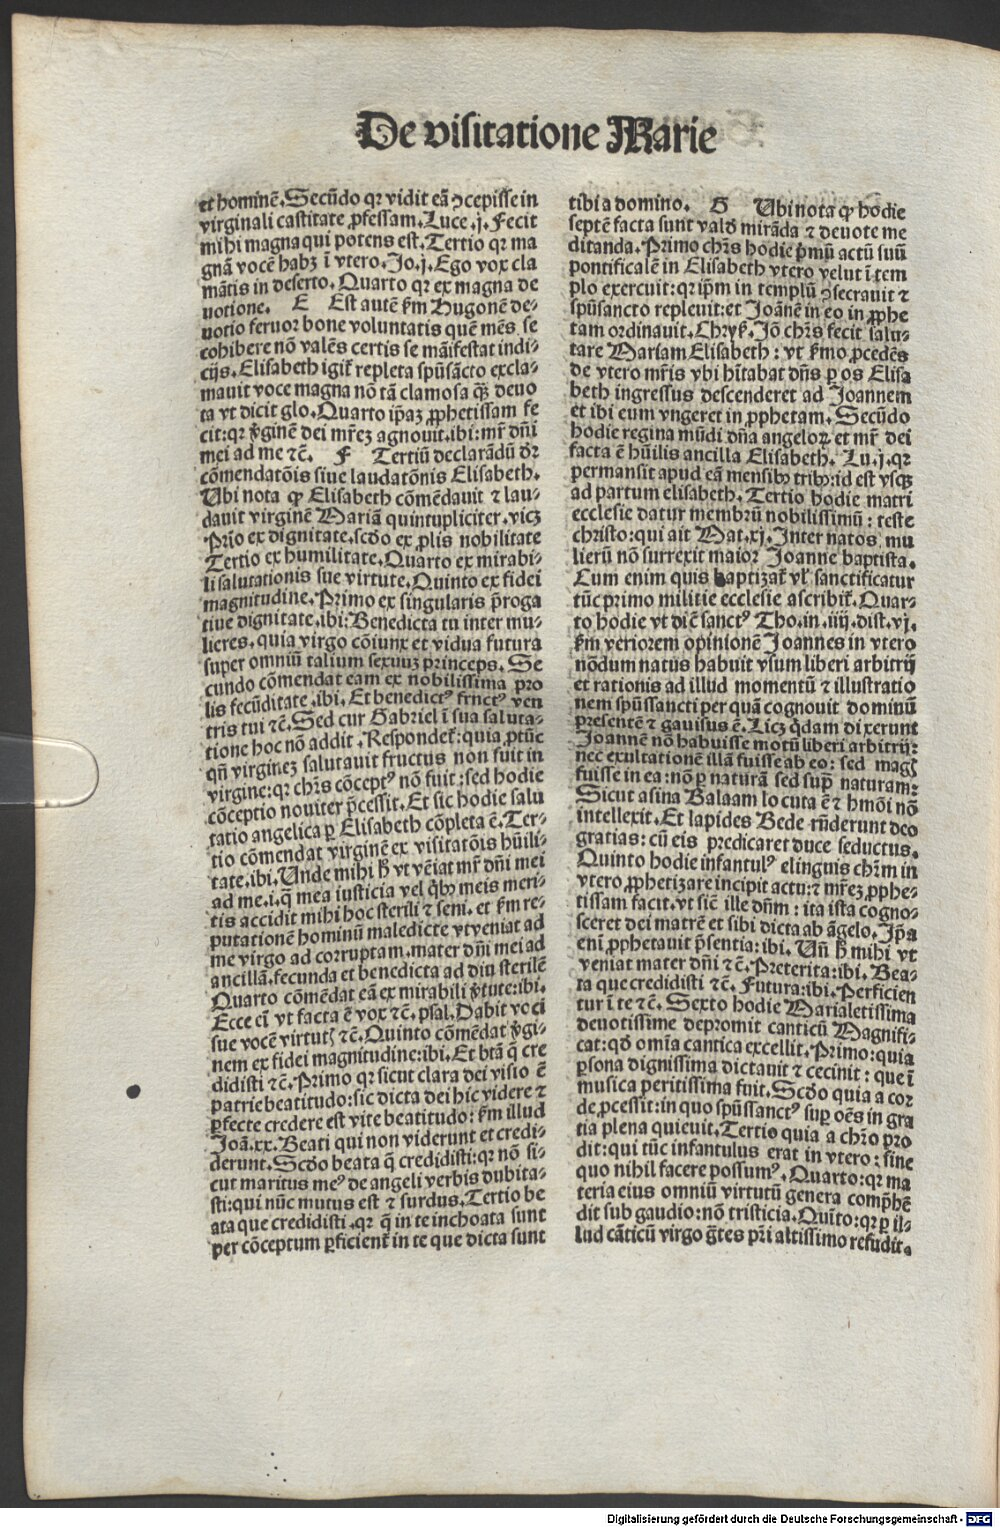 De visitatione Marie
et hominē. Secūdo qꝛ vidit eā ꝯcepisse in
virginali castitate ꝓfessam. Luce .j. Fecit
mihi magna qui potens est. Tertio qꝛ ma
gnā vocē habꝫ ī vtero. Jo. j. Ego vox cla
mātis in deserto. Quarto qꝛ ex magna de
uotione. E Est autē ẜm Hugonē de-
uotio feruor bone voluntatis quē mēs se
cohibere nō valēs certis se māifestat indi-
cijs. Elisabeth igit᷑ repleta spūsācto excla-
mauit voce magna nō tā clamosa q̄ꝫ deuo
ta vt dicit glo. Quarto ip̄aꝫ ꝓphetissam fe
cit: qꝛ v̓ginē dei mr̄eꝫ agnouit. ibi: mr̄ dn̄i
mei ad me ⁊c̄. F Tertiū declarādū dr̄
cōmendatōnis siue laudatōnis Elisabeth.
Ubi nota ꝙ Elisabeth cōmēdauit ⁊ lau-
dauit virginē Mariā quintupliciter. vicꝫ
Prīo ex dignitate. scd̓o ex ꝓlis nobilitate
Tertio ex humilitate. Quarto ex mirabi-
li salutationis sue virtute. Quinto ex fidei
magnitudine. Primo ex singularis p̄roga
tiue dignitate. ibi: Benedicta tu inter mu-
lieres. quia virgo cōiunx et vidua futura
super omniū talium sexuuꝫ princeps. Se
cundo cōmendat eam ex nobilissima pro
lis fecūditate. ibi. Et benedictꝰ frnctꝰ ven
tris tui ⁊c̄. Sed cur Gabriel ī sua saluta-
tione hoc nō addit. Respondet᷑: quia ꝓtūc
qn̄ virgineꝫ salutauit fructus non fuit in
virgine: qꝛ chr̄s cōceptꝰ nō fuit: sed hodie
cōceptio nouiter p̄cessit. Et sic hodie salu
tatio angelica ꝑ Elisabeth cōpleta ē. Ter-
tio cōmendat virginē ex visitatōis hūili-
tate. ibi. Unde mihi h̓ vt vēiat mr̄ dn̄i mei
ad me. i. q̄ mea iusticia vel q̓bꝰ meis meri-
tis accidit mihi hoc sterili ⁊ seni. et ẜm re-
putationē hominū maledicte vt veniat ad
me virgo ad corruptam. mater dn̄i mei ad
ancillā. fecunda et benedicta ad diu sterilē
Quarto cōmēdat eā ex mirabili v̓tute: ibi.
Ecce em̄ vt facta ē vox ⁊c̄. psal. Dabit voci
sue vocē virtutꝭ ⁊c̄. Quinto cōmēdat v̓gi-
nem ex fidei magnitudine: ibi. Et btā q̄ cre
didisti ⁊c̄. Primo qꝛ sicut clara dei visio ē
patrie beatitudo: sic dicta dei hic videre ⁊
ꝑfecte credere est vite beatitudo: ẜm illud
Joā. xx. Beati qui non viderunt et credi-
derunt. Scd̓o beata q̄ credidisti: qꝛ nō si-
cut maritus meꝰ de angeli verbis dubita-
sti: qui nūc mutus est ⁊ surdus. Tertio be
ata que credidisti. qꝛ q̄ in te inchoata sunt
per cōceptum ꝑficient᷑ in te que dicta sunt
tibi a domino. G Ubi nota ꝙ hodie
septē facta sunt vald̓ mirāda ⁊ deuote me
ditanda. Primo chr̄s hodie p̄mū actū suū
pontificalē in Elisabeth vtero velut ī tem
plo exercuit: qꝛ ip̄m in templū ꝯsecrauit ⁊
spūsancto repleuit: et Joānē in eo in ꝓphe
tam ordinauit. Chryẜ. Jō chr̄s fecit salu-
tare Mariam Elisabeth: vt ẜmo ꝓcedēs
de vtero mr̄is vbi hītabat dn̄s ꝑ os Elisa
beth ingressus descenderet ad Joannem
et ibi eum vngeret in ꝓphetam. Secūdo
hodie regina mūdi dn̄a angeloꝝ et mr̄ dei
facta ē hūilis ancilla Elisabeth. Lu. j. qꝛ
permansit apud eā mensibꝰ tribꝰ: id est vsqꝫ
ad partum elisabeth. Tertio hodie matri
ecclesie datur membrū nobilissimū: teste
christo: qui ait Mat. xj. Inter natos mu
lierū nō surrexit maior Joanne baptista.
Cum enim quis baptizat᷑ vl̓ sanctificatur
tūc primo militie ecclesie ascribit᷑. Quar-
to hodie vt dic̄ sanctꝰ Tho. in .iiij. dist. vj.
ẜm veriorem opinionē Joannes in vtero
nōdum natus habuit vsum liberi arbitrij
et rationis ad illud momentū ⁊ illustratio
nem spūssancti per quā cognouit dominū
presentē ⁊ gauisus ē. Licꝫ q̄dam dixerunt
Joannē nō habuisse motū liberi arbitrij:
nec exultationē illā fuisse ab eo: sed magꝭ
fuisse in ea: nō ꝑ naturā sed supͣ naturam:
Sicut asina Balaam locuta ē ⁊ hmōi nō
intellexit. Et lapides Bede rn̄derunt deo
gratias: cū eis predicaret duce seductus.
Quinto hodie infantulꝰ elinguis chr̄m in
vtero ꝓphetizare incipit actu: ⁊ mr̄eꝫ ꝓphe-
tissam facit. vt sic̄ ille dn̄m: ita ista cogno-
sceret dei matrē et sibi dicta ab āgelo. Ip̄a
enī ꝓphetauit p̄sentia: ibi. Un̄ h̓ mihi vt
veniat mater dn̄i ⁊c̄. Preterita: ibi. Bea-
ta que credidisti ⁊c̄. Futura: ibi. Perficien
tur ī te ⁊c̄. Sexto hodie Maria letissima
deuotissime depromit canticū Magnifi-
cat: qd̓ omīa cantica excellit. Primo: quia
ꝑsona dignissima dictauit ⁊ cecinit: que ī
musica peritissima fuit. Scd̓o quia a cor
de ꝓcessit: in quo spūssanctꝰ suꝑ oēs in gra
tia plena quieuit. Tertio quia a chr̄o pro
dit: qui tūc infantulus erat in vtero: sine
quo nihil facere possumꝰ. Quarto: qꝛ ma
teria eius omniū virtutū genera comp̄hē
dit sub gaudio: nō tristicia. Quīto: qꝛ ꝑ il-
lud cāticū virgo g̓tes pr̄i altissimo refudit.
Digitalisierung gefördert durch die Deutsche Forschungsgemeinschaft - DFG